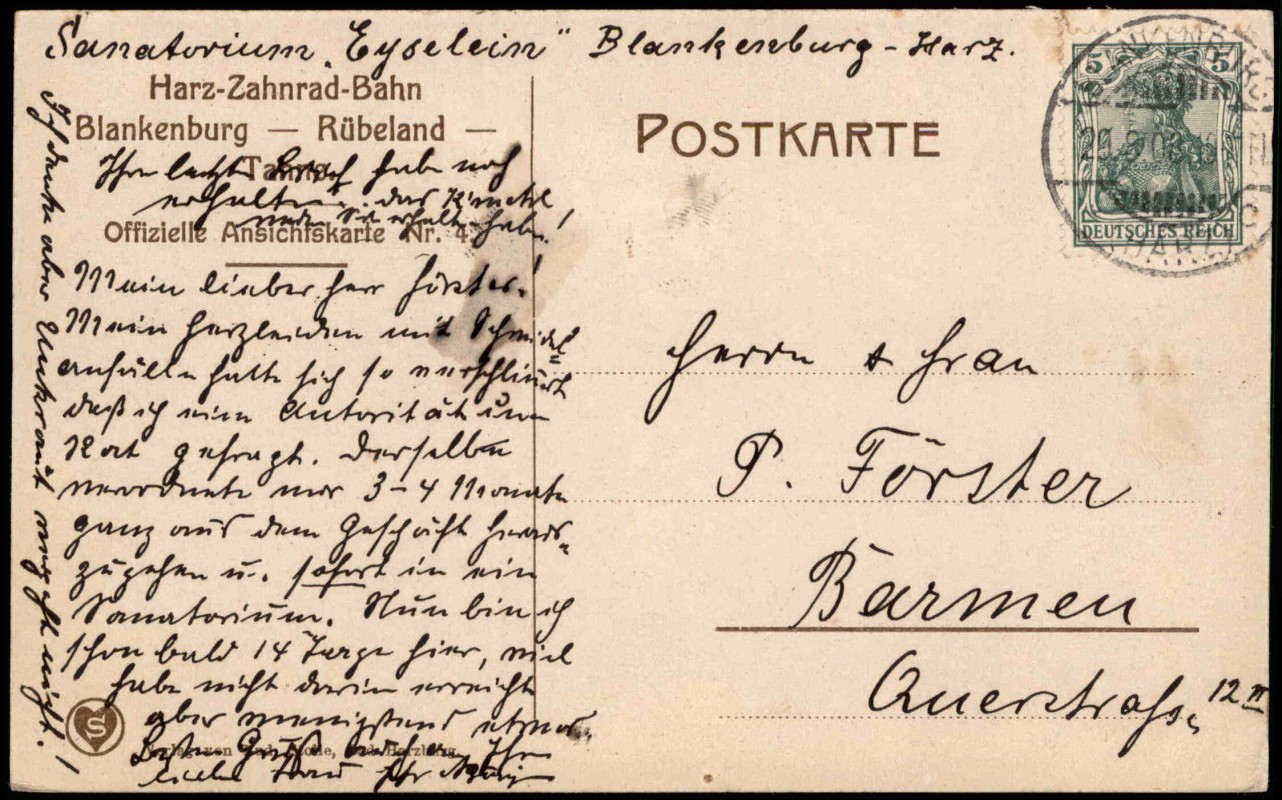 Sanatorium „Eyselein“ Blankenburg-Harz.
Harz-Zahnrad-Bahn
Blankenburg — Rübeland —
Tanne.
Ihre letzte habe noch
erhalten.
Offizielle Ansichtskarte Nr. 4
Mein lieber Herr Förster!
Mein Herzleiden mit Schwindel=
anfällen hatte sich so verschlimmert
daß ich eine Autorität um
Rat gefragt. Derselbe
verordnete mir 3-4 Monate
ganz aus dem Geschäft heraus=
zugehen u. sofort in ein
Sanatorium. Nun bin ich
schon bald 14 Tage hier, viel
habe nicht darin erreicht
aber wenigstens etwas.
Ihre
liebe Frau Ihr
Ich denke aber Unkraut vergeht nicht!
S
POSTKARTE
5 5
DEUTSCHES REICH
Herrn & Frau
P. Förster
Barmen
Querstraße 12 II